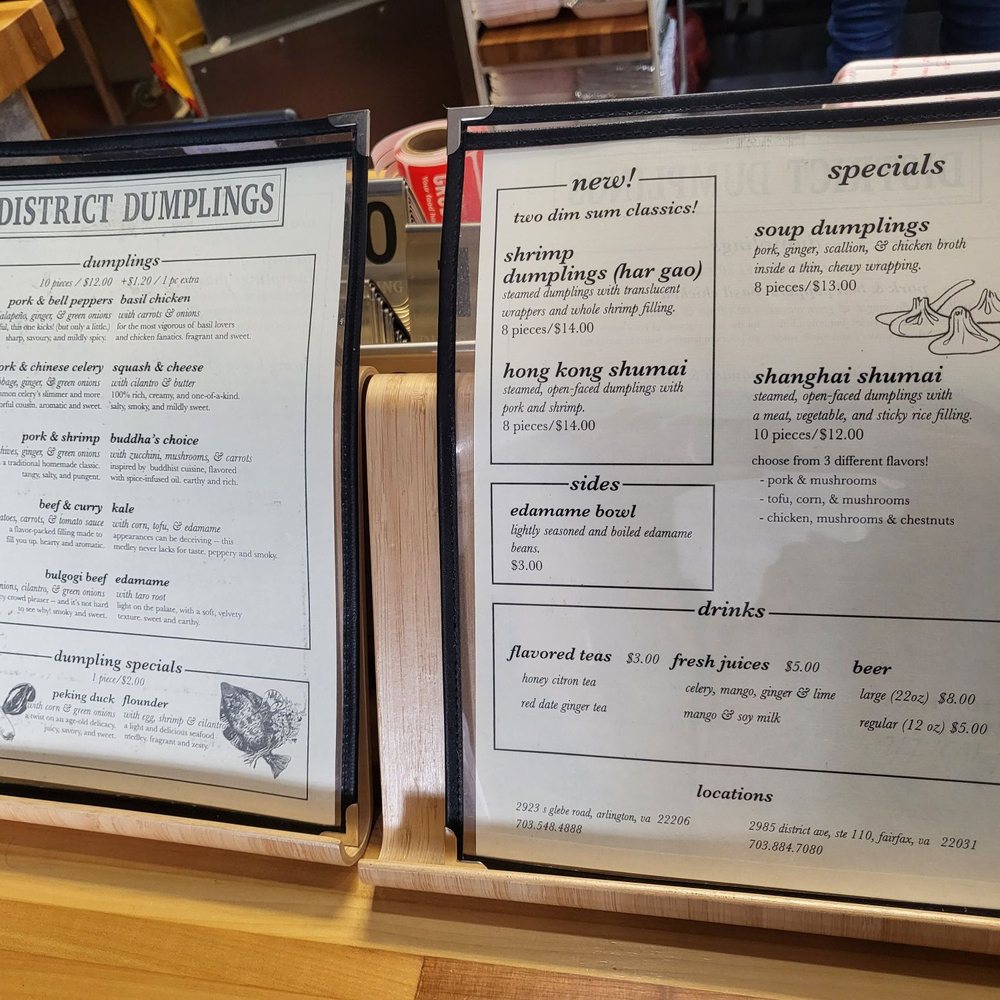 DISTRICT DUMPLINGS
dumplings
10 pieces / $12.00 +$1.20 / 1 pc extra
pork & bell peppers
jalapeño, ginger, & green onions
this one kicks! (but only a little.)
sharp, savoury, and mildly spicy.
basil chicken
with carrots & onions
for the most vigorous of basil lovers
and chicken fanatics. fragrant and sweet.
& chinese celery
ginger, & green onions
celery's slimmer and more
cousin. aromatic and sweet.
squash & cheese
with cilantro & butter
100% rich, creamy, and one-of-a-kind.
salty, smoky, and mildly sweet.
pork & shrimp
ginger, & green onions
a traditional homemade classic.
tangy, salty, and pungent.
buddha's choice
with zucchini, mushrooms, & carrots
inspired by buddhist cuisine, flavored
with spice-infused oil. earthy and rich.
beef & curry
carrots, & tomato sauce
a flavor-packed filling made to
fill you up. hearty and aromatic.
kale
with corn, tofu, & edamame
appearances can be deceiving – this
medley never lacks for taste. peppery and smoky.
bulgogi beef
cilantro, & green onions
crowd pleaser – and it's not hard
to see why! smoky and sweet.
edamame
with taro root
light on the palate, with a soft, velvety
texture. sweet and earthy.
dumpling specials
1 piece/$2.00
peking duck
with corn & green onions
a twist on an age-old delicacy.
juicy, savory, and sweet.
flounder
with egg, shrimp & cilantro
a light and delicious seafood
medley. fragrant and zesty.
0
new!
two dim sum classics!
shrimp
dumplings (har gao)
steamed dumplings with translucent
wrappers and whole shrimp filling.
8 pieces/$14.00
hong kong shumai
steamed, open-faced dumplings with
pork and shrimp.
8 pieces/$14.00
sides
edamame bowl
lightly seasoned and boiled edamame
beans.
$3.00
specials
soup dumplings
pork, ginger, scallion, & chicken broth
inside a thin, chewy wrapping.
8 pieces/$13.00
shanghai shumai
steamed, open-faced dumplings with
a meat, vegetable, and sticky rice filling.
10 pieces/$12.00
choose from 3 different flavors!
- pork & mushrooms
- tofu, corn, & mushrooms
- chicken, mushrooms & chestnuts
drinks
flavored teas $3.00
honey citron tea
red date ginger tea
fresh juices $5.00
celery, mango, ginger & lime
mango & soy milk
beer
large (22oz) $8.00
regular (12 oz) $5.00
locations
2923 s glebe road, arlington, va 22206
703.548.4888
2985 district ave, ste 110, fairfax, va 22031
703.884.7080